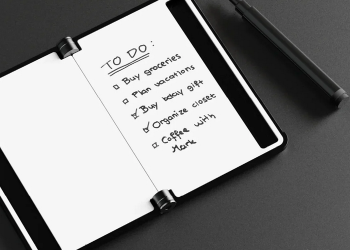 TO DO:
Buy groceries
Plan vacations
Buy bday gift
Organize closet
Coffee with
Mark